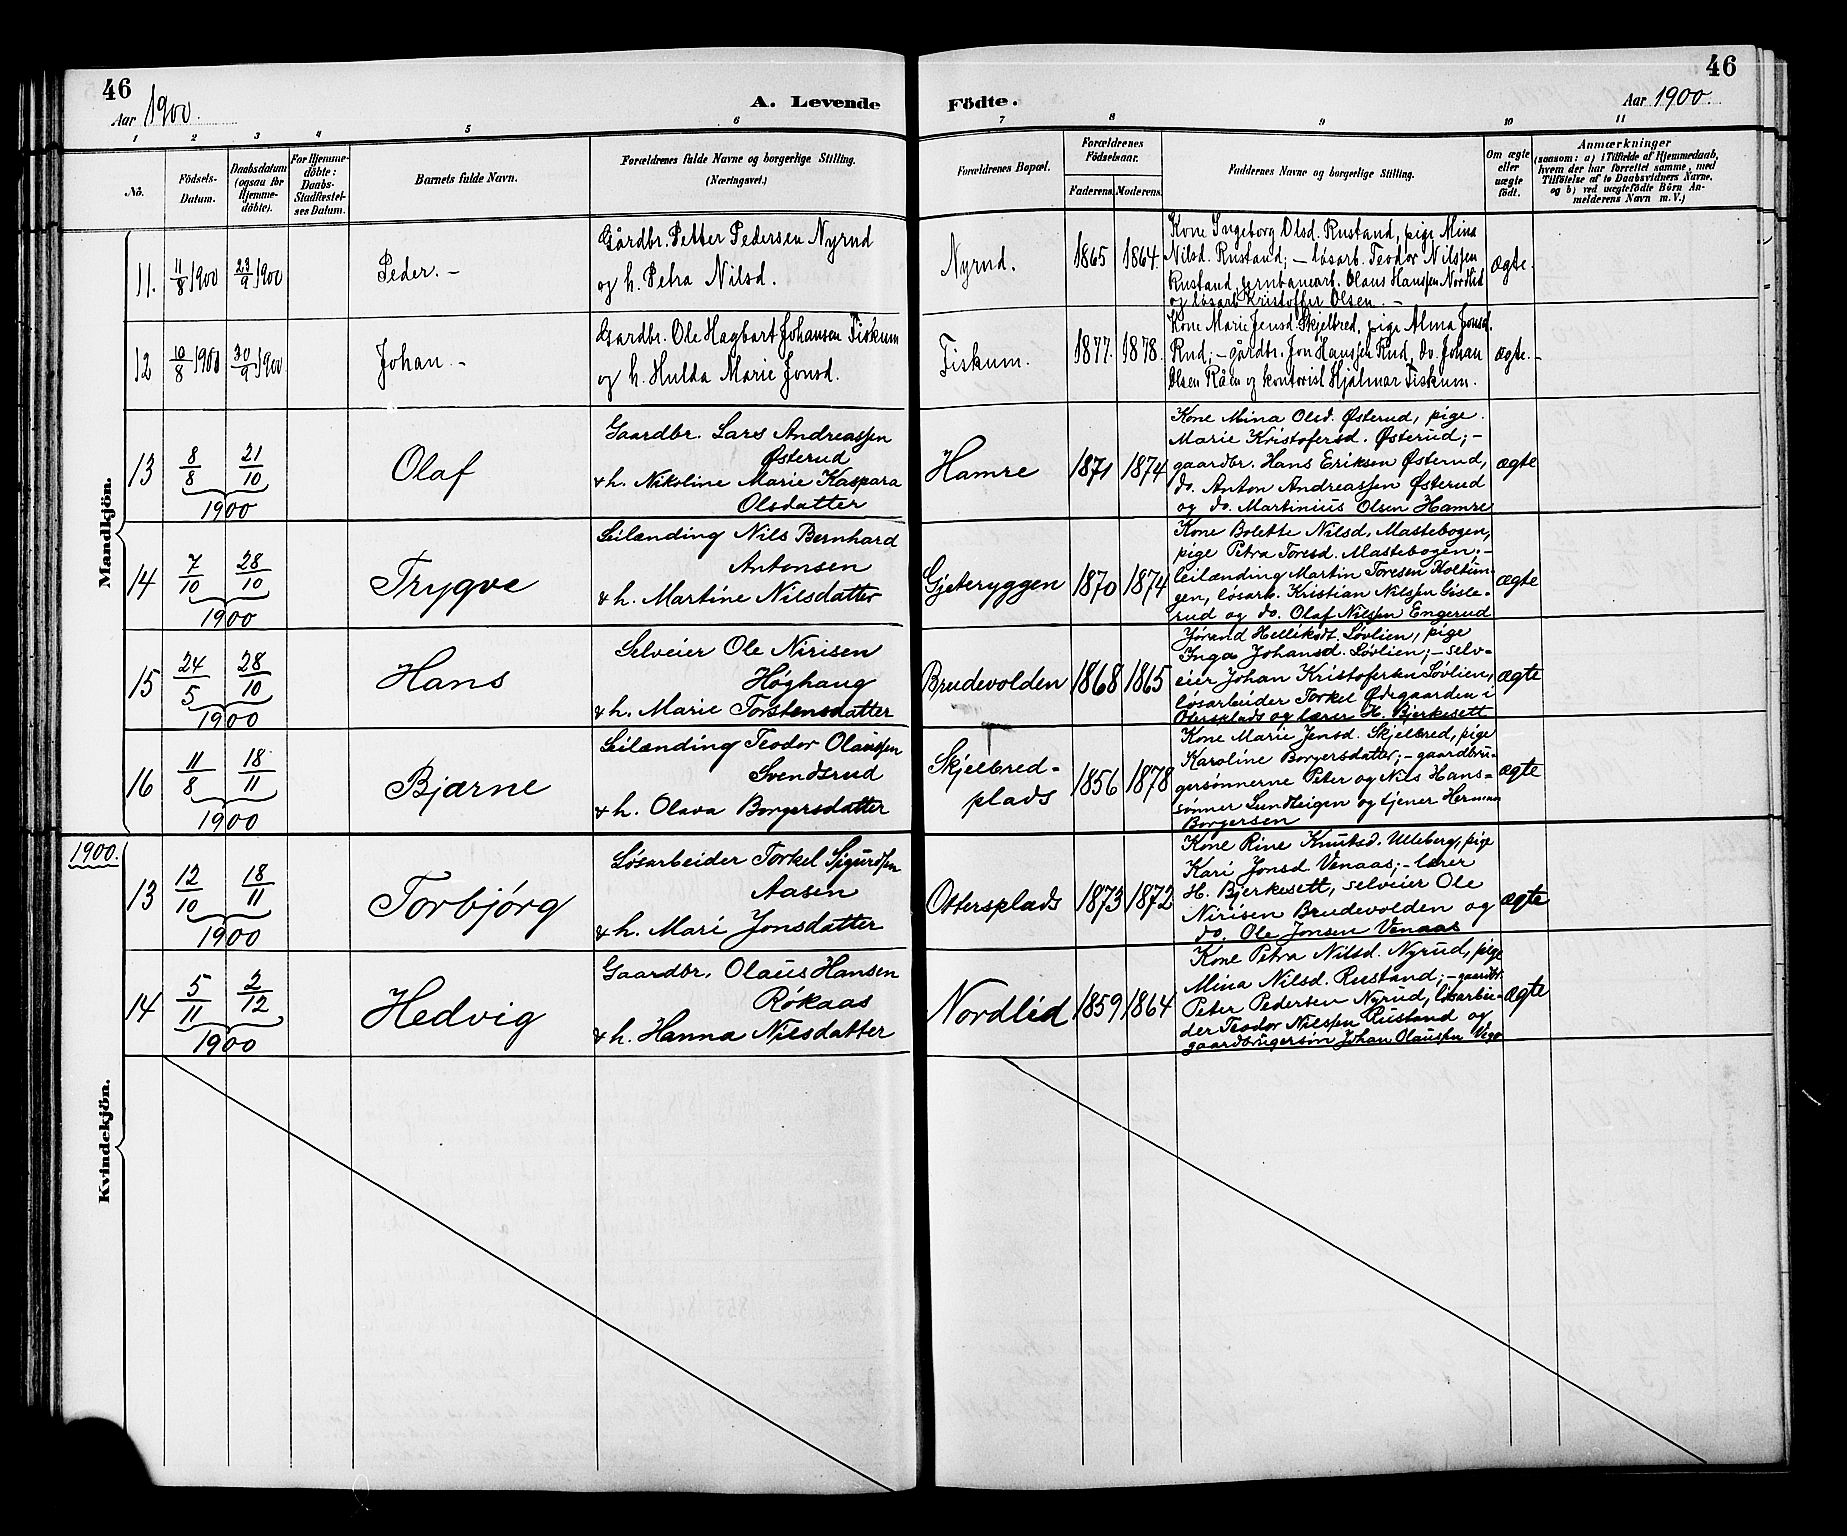 46
Aar 1900.
A. Levende
Födte.
46
Aar 1900.
1 2 3 4 5 6 7 8 9 10 11
No.
Födsels-
Datum.
Daabsdatum
(ogsaa for
Hjemme-
döbte).
For Hjemme-
döbte:
Daabs-
Stadfæstel-
ses Datum.
Barnets fulde Navn.
Forældrenes fulde Navne og borgerlige Stilling.
(Næringsvei.)
Forældrenes Bopæl.
Forældrenes
Födselsaar.
Faderens.
Moderens.
Faddernes Navne og borgerlige Stilling.
Om ægte
eller
uægte
födt.
Anmærkninger
(saasom: a) i Tilfælde af Hjemmedaab,
hvem der har forrettet samme, med
Tilföielse af to Daabsvidners Navne,
og b) ved uægtefödte Börn An-
melderens Navn m. V.)
Mandkjön.
11.
11/8 1900
23/9 1900
Peder. -
Gårdbr. Petter Pedersen Nyrud
og h. Petra Nilsd.
Nyrud.
1865
1864.
Kone Ingeborg Olsd. Rustand, pige Mina
Nilsd. Rustand; - løsarb. Teodor Nilssen
Rustand, jernbanearb. Olaus Hanssen Nordlid
og løsarb. Kristoffer Olsen. -
ægte.
12
10/8 1900
30/9 1900
Johan. -
Gårdbr. Ole Hagbart Johansen Fiskum
og h. Hulda Marie Jonsd.
Fiskum.
1877.
1878.
Kone Marie Jensd. Skjelbred, pige Alma Jonsd.
Rud; - gårdbr. Jon Hanssen Rud, do. Johan
Olsen Råen og kontorist Hjalmar Fiskum.
ægte. -
13
8/8
21/10
1900
Olaf
Gaardbr. Lars Andreassen
Østerud
& h. Nikoline Marie Kaspara
Olsdatter
Hamre
1871
1874
Kone Mina Olsd. Østerud, pige
Marie Kristofersd. Østerud; -
gaardbr. Hans Eriksen Østerud,
do. Anton Andreassen Østerud
og do. Martinius Olsen Hamre
ægte
14
7/10
28/10
1900
Trygve
Leilænding Nils Bernhard
Antonsen
& h. Martine Nilsdatter
Gjeteryggen
1870
1874
Kone Bolette Nilsd. Mastebogen,
pige Petra Toresd. Mastebogen; -
leilænding Martin Toresen Holtun-
gen, løsarb. Kristian Nilssen Gisle-
rud og do. Olaf Nilssen Engerud
ægte
15
24/5
28/10
1900
Hans
Selveier Ole Nirisen
Høghaug
& h. Marie Torstensdatter
Brudevolden
1868
1865
Jørand Helliksdt. Løvlien, pige
Inga Johansd. Løvlien; - selv-
eier Johan Kristofersen Løvlien,
løsarbeider Torkel Ødegaarden i
Otersplads og lærer H. Bjerkesett
ægte
16
11/8
18/11
1900
Bjarne
Leilænding Teodor Olaussen
Svendsrud
& h. Olava Borgersdatter
Skjelbred-
plads
1856
1878
Kone Marie Jensd. Skjelbred, pige
Karoline Borgersdatter; - gaardbru-
gersønnerne Peter og Nils Hans-
sønner Sundteigen og tjener Herman
Borgersen
ægte
1900.
Kvindekjön.
13
12/10
18/11
1900
Torbjørg
Løsarbeider Torkel Sigurdsen
Aasen
& h. Mari Jonsdatter
Ottersplads
1873
1872
Kone Rine Knutsd. Ulleberg, pige
Kari Jonsd. Venaas; - lærer
H. Bjerkesett, selveier Ole
Nirisen Brudevolden og
do. Ole Jonsen Venaas
ægte
14
5/11
2/12
1900
Hedvig
Gaardbr. Olaus Hansen
Røkaas
& h. Hanna Nilsdatter
Nordlid
1859
1864
Kone Petra Nilsd. Nyrud, pige
Mina Nilsd. Rustand; - gaardbr.
Peter Pedersen Nyrud, løsarbei-
der Teodor Nilssen Rustand og
gaardbrugersøn Johan Olaussen
ægte